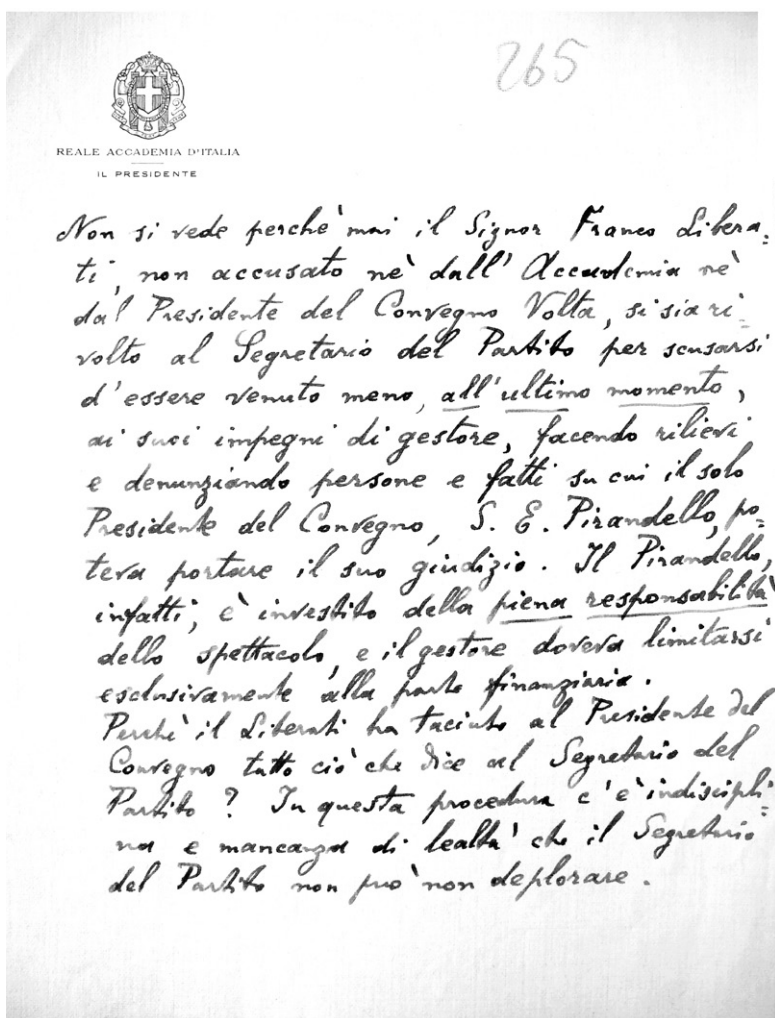 265
REALE ACCADEMIA D'ITALIA
IL PRESIDENTE
Non si vede perchè mai il Signor Franco Libera=
ti, non accusato nè dall'Accademia nè
dal Presidente del Convegno Volta, si sia ri=
volto al Segretario del Partito per scusarsi
d'essere venuto meno, all'ultimo momento,
ai suoi impegni di gestore, facendo rilievi
e denunziando persone e fatti su cui il solo
Presidente del Convegno, S. E. Pirandello, po=
teva portare il suo giudizio. Il Pirandello,
infatti, è investito della piena responsabilità
dello spettacolo, e il gestore doveva limitarsi
esclusivamente alla parte finanziaria.
Perchè il Liberati ha taciuto al Presidente del
Convegno tutto ciò che dice al Segretario del
Partito? In questa procedura c'è indiscipli=
na e mancanza di lealtà che il Segretario
del Partito non può non deplorare.